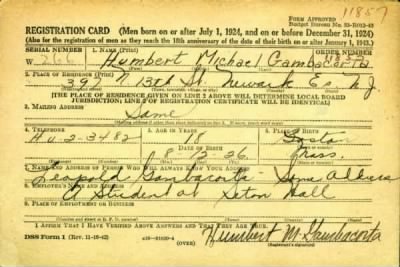 11857
FORM APPROVED
Budget Bureau No. 33-R012-43
REGISTRATION CARD (Men born on or after July 1, 1924, and on or before December 31, 1924)
(Also for the registration of men as they reach the 18th anniversary of the date of their birth on or after January 1, 1943.)
SERIAL NUMBER
1. NAME (Print)
ORDER NUMBER
W 266
Humbert Michael Gambacorta
11857
(First) (Middle) (Last)
2. PLACE OF RESIDENCE (Print)
397 N 13th St. Newark Es. N.J.
[THE PLACE OF RESIDENCE GIVEN ON LINE 2 ABOVE WILL DETERMINE LOCAL BOARD
JURISDICTION; LINE 2 OF REGISTRATION CERTIFICATE WILL BE IDENTICAL]
3. MAILING ADDRESS
Same
4. TELEPHONE
5. AGE IN YEARS
6. PLACE OF BIRTH
Hu-2-3482
18
Boston
DATE OF BIRTH
Mass.
7. NAME AND ADDRESS OF PERSON WHO WILL ALWAYS KNOW YOUR ADDRESS
Leopold Gambacorta - Same Address
8. EMPLOYER'S NAME AND ADDRESS
A Student at Seton Hall
9. PLACE OF EMPLOYMENT OR BUSINESS
I AFFIRM THAT I HAVE VERIFIED ABOVE ANSWERS AND THAT THEY ARE TRUE.
DSS Form 1 (Rev. 11-16-42)
Humbert M. Gambacorta
(Registrant's signature)